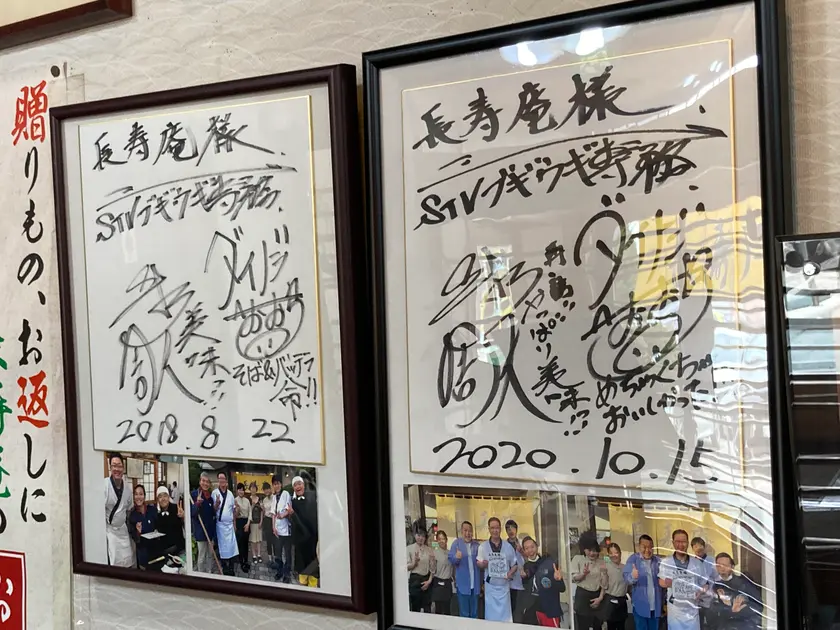 贈りもの、お返しに
長寿庵様
STVブギウギ専務
ダイノジ
おおち
美味っ!!
そば&バッテラ
命!!
2018.8.22
長寿庵様
STVブギウギ専務
ダイノジ
おおち
再訪!!!
やっぱり美味!!
めちゃくちゃ
おいしかった
2020.10.15